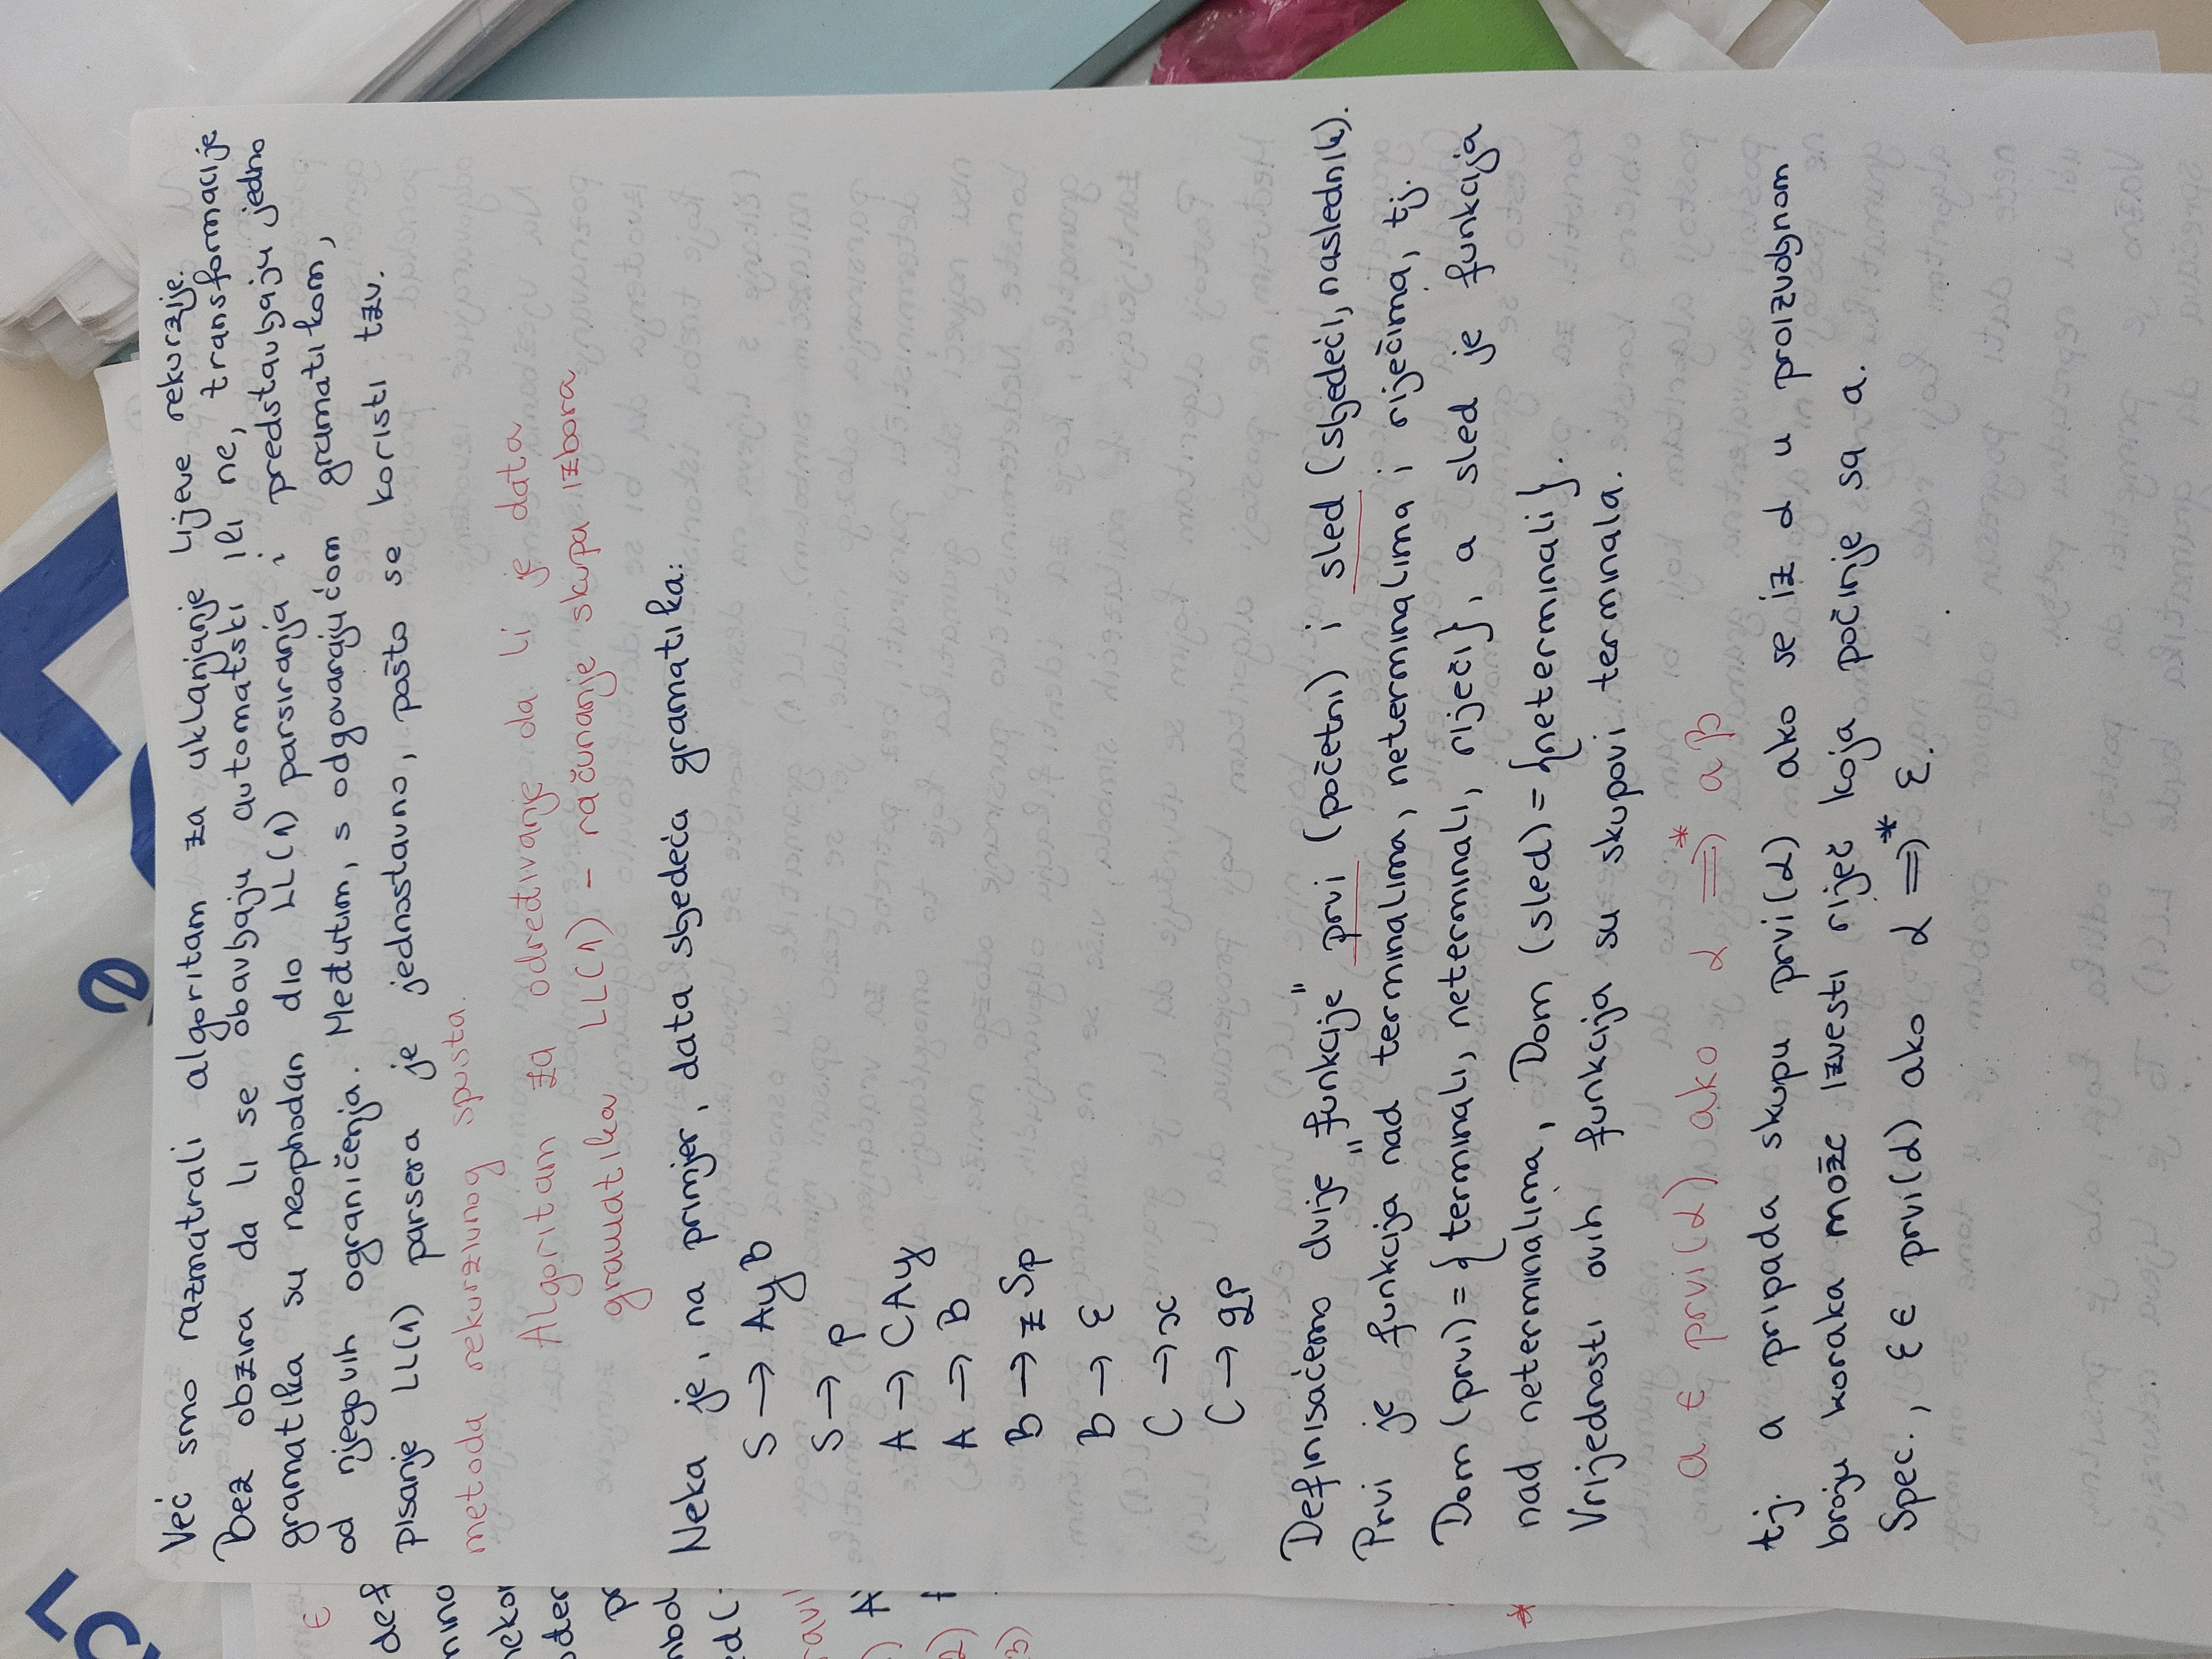 Već smo razmatrali algoritam za uklanjanje lijeve rekurzije.
Bez obzira da li se obavljaju automatski ili ne, transformacije
gramatika su neophodan dio LL(1) parsiranja i predstavljaju jedno
od njegovih ograničenja. Međutim, s odgovarajućom gramatikom,
pisanje LL(1) parsera je jednostavno, pošto se koristi tzv.
metoda rekurzivnog spusta.
Algoritam za određivanje da li je data
gramatika LL(1) - računanje skupa izbora
Neka je, na primjer, data sljedeća gramatika:
S → AyB
S → p
A → CAy
A → B
B → zSp
B → ε
C → x
C → qp
Definisaćemo dvije "funkcije" prvi (početni) i sled (sljedeći, naslednik).
Prvi je funkcija nad terminalima, neterminalima i riječima, tj.
Dom (prvi) = {terminali, neterminali, riječi}, a sled je funkcija
nad neterminalima, Dom (sled) = {neterminali}.
Vrijednosti ovih funkcija su skupovi terminala.
a ∈ prvi(α) ako α ⇒* aβ
tj. a pripada skupu prvi(α) ako se iz α u proizvoljnom
broju koraka može izvesti riječ koja počinje sa a.
Spec., ε ∈ prvi(α) ako α ⇒* ε.